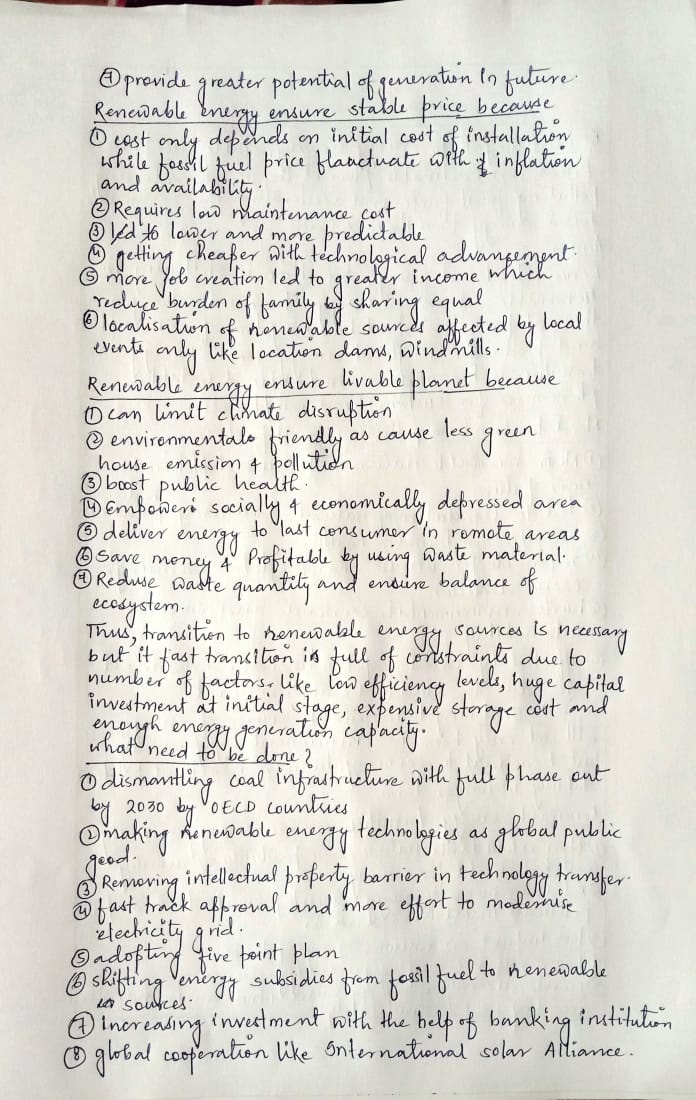 ⑦ provide greater potential of generation in future.
Renewable energy ensure stable price because
① cost only depends on initial cost of installation
while fossil fuel price flauctuate with inflation
and availability.
② Requires low maintenance cost
③ led to lower and more predictable
④ getting cheaper with technological advancement.
⑤ more job creation led to greater income which
reduce burden of family by sharing equal
⑥ localisation of renewable sources affected by local
events only like location dams, windmills.
Renewable energy ensure livable planet because
① can limit climate disruption
② environmentals friendly as cause less green
house emission & pollution
③ boost public health.
④ Empowers socially & economically depressed area
⑤ deliver energy to last consumer in remote areas
⑥ Save money & Profitable by using waste material.
⑦ Reduse waste quantity and ensure balance of
ecosystem.
Thus, transition to renewable energy sources is necessary
but it fast transition is full of constraints due to
number of factors. like low efficiency levels, huge capital
investment at initial stage, expensive storage cost and
enough energy generation capacity.
what need to be done?
① dismantling coal infrastructure with full phase out
by 2030 by OECD countries
② making renewable energy technologies as global public
good.
③ Removing intellectual property barrier in technology transfer.
④ fast track approval and more effort to modernise
electricity grid.
⑤ adopting five point plan
⑥ shifting energy subsidies from fossil fuel to renewable
sources.
⑦ Increasing investment with the help of banking institution
⑧ global cooperation like International solar Alliance.